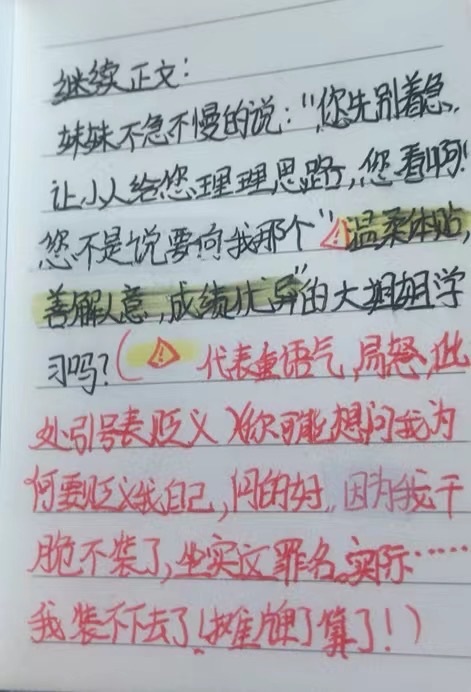 继续正文：
妹妹不急不慢的说："你先别着急,
让小人给您理理思路,您看啊!
您不是说要向我那个"⚠温柔体贴,
善解人意,成绩优异"的大姐姐学
习吗?(⚠代表重语气,局怒,此
处引号表贬义)(你可能想问我为
何要贬义我自己,问的好,因为我干
脆不装了,坐实这罪名。实际……
我装不下去了(摊牌了算了!)